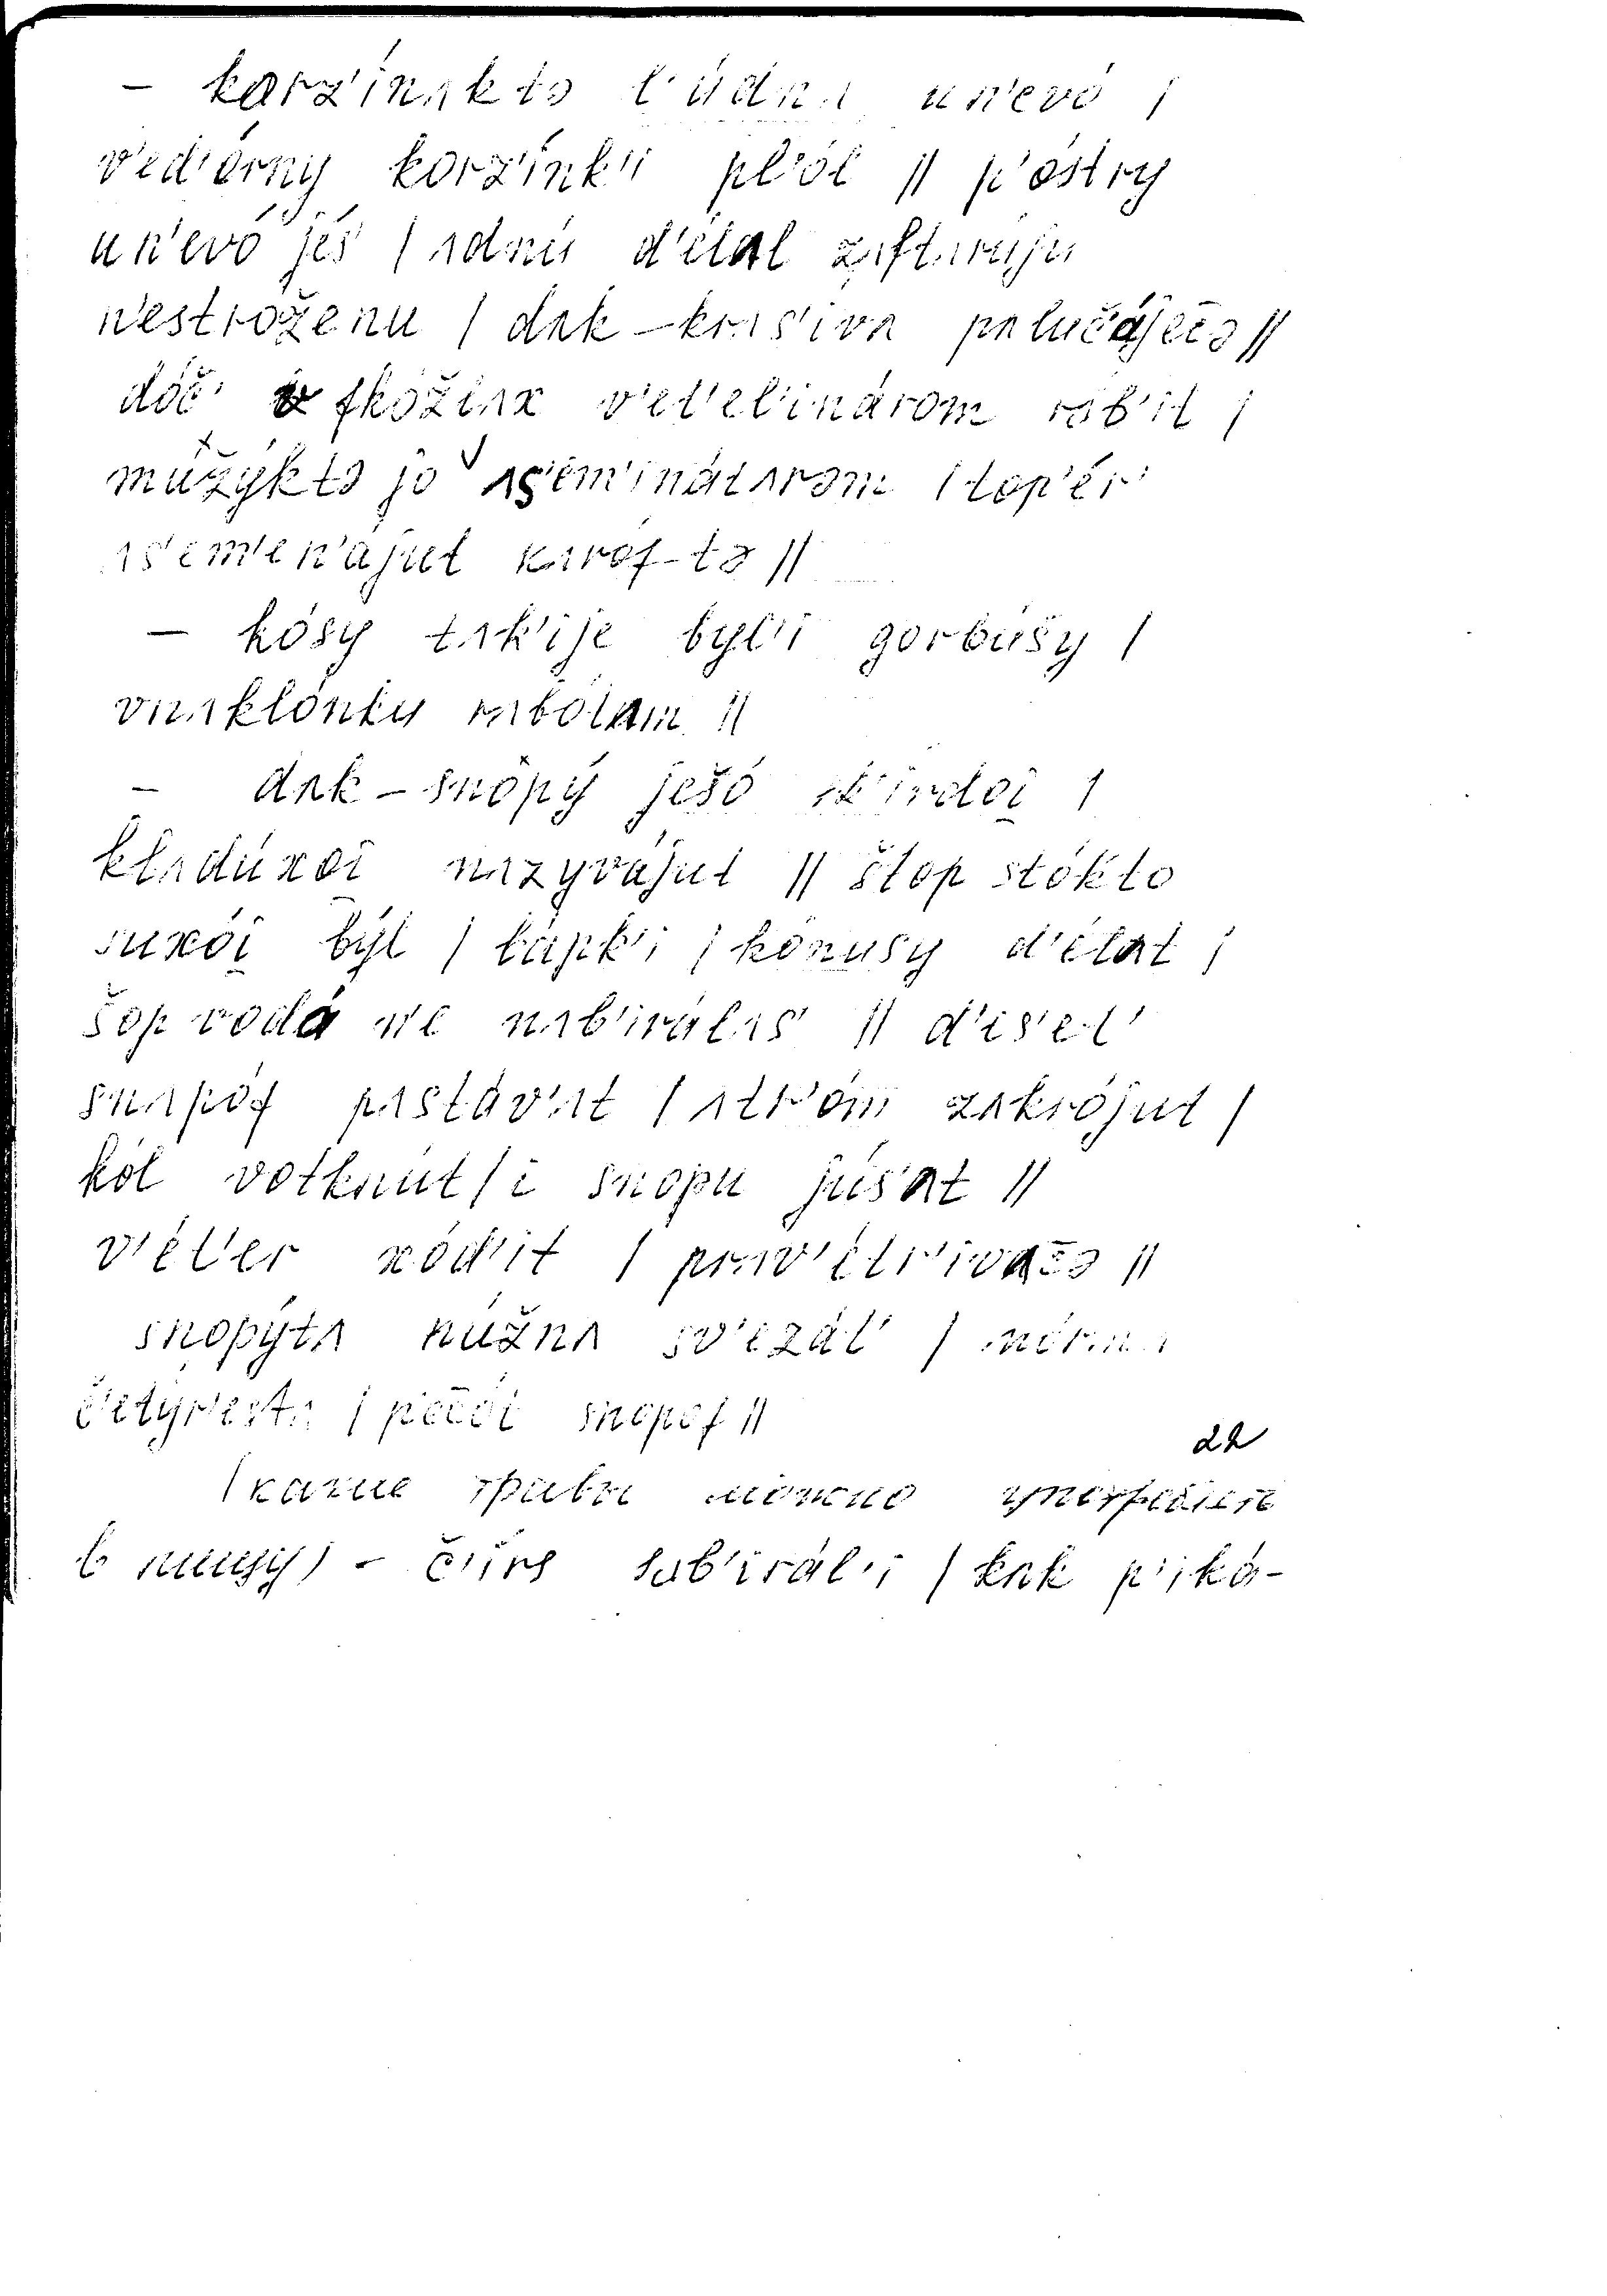 – karz'ínʌktə l'údnʌ un'evó /
v'ed'órny korz'ínk'i pl'ól // p'óstry
un'evó jés' / ʌdnú d'élʌl zʌftʌrúju
n'estróženu / dʌk – krʌs'ívʌ pʌluč'ájec̄ə //
dóč' fkóžlʌx v'et'el'inárom rób'it /
mužýktə jo ʌs'em'inátʌrəm / top'ér'
ʌs'em'en'ájut kʌróf-tə //
– kósy tʌk'ije býl'i gorbúšy /
vnʌklónku rʌbótʌm //
– dʌk – snopý ješó sk'irdoi̯ /
klʌdúxoi̯ nʌzyvájut // štop stókto
suxói̯ býl / lápk'i / kónusy d'élʌt /
šop vodá n'e nʌb'irálʌs' // d'és'et'
snʌpóf pʌstáv'ʌt / ʌtr'óm zʌkrójut /
kól votknút / i snopu jús'ʌt //
v'ét'er xód'it / prʌv'étr'ivʌc̄ə //
snopýtʌ núžnʌ sv'ezát' /
č'etýr'estʌ / p'ec̄ót snopof //
22
/какие травы можно употреблять
в пищу/ – č'úrs sʌb'irál'i / kʌk p'iká-